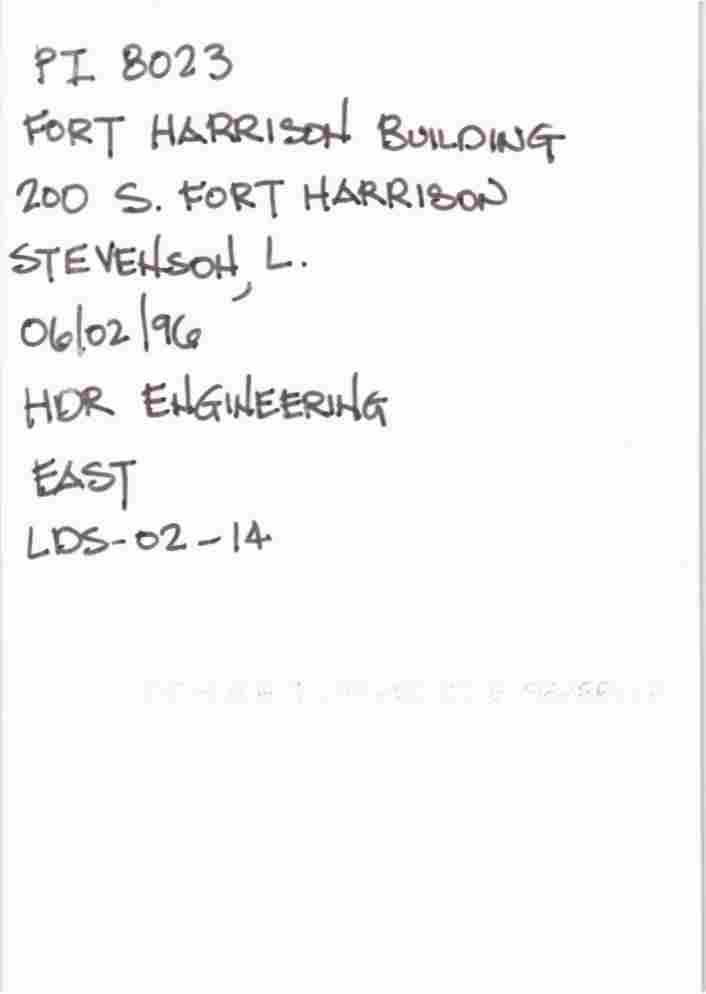 PI 8023
FORT HARRISON BUILDING
200 S. FORT HARRISON
STEVENSON, L.
06/02/96
HDR ENGINEERING
EAST
LDS-02-14